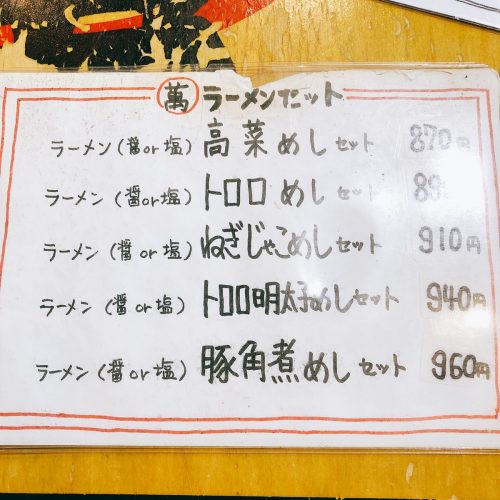 萬 ラーメンセット
ラーメン(醤or塩) 高菜めしセット 870円
ラーメン(醤or塩) トロロめしセット
ラーメン(醤or塩) ねぎじゃこめしセット 910円
ラーメン(醤or塩) トロロ明太子めしセット 940円
ラーメン(醤or塩) 豚角煮めしセット 960円